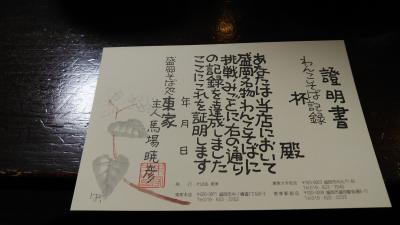 證明書
わんこそば記録
杯
殿
あなたは当店において
盛岡名物わんこそばに
挑戦みごとに右の通り
の記録を達成しました
ここにこれを証明します
年 月 日
盛岡そば処 東家
主人 馬場暁彦